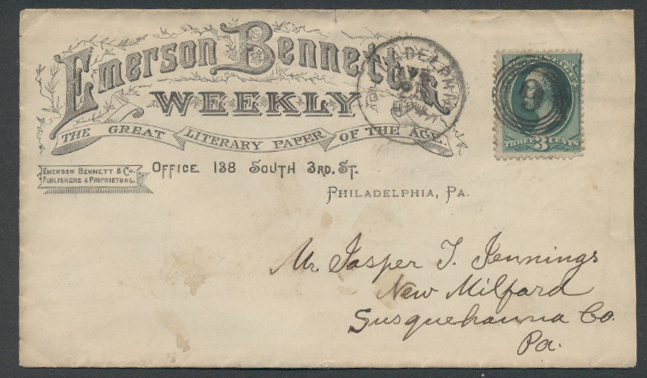 Emerson Bennett's
WEEKLY
THE GREAT LITERARY PAPER OF THE AGE.
EMERSON BENNETT & CO.
PUBLISHERS & PROPRIETORS.
OFFICE 138 SOUTH 3RD. ST.
PHILADELPHIA, PA.
PHILADELPHIA
THREE 3 CENTS
Mr. Jasper T. Jennings
New Milford
Susquehanna Co.
Pa.